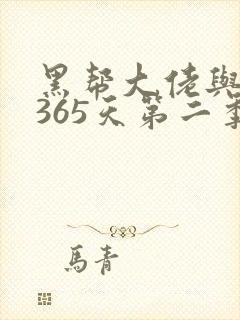 黑帮大佬與
365天第二季
馬青